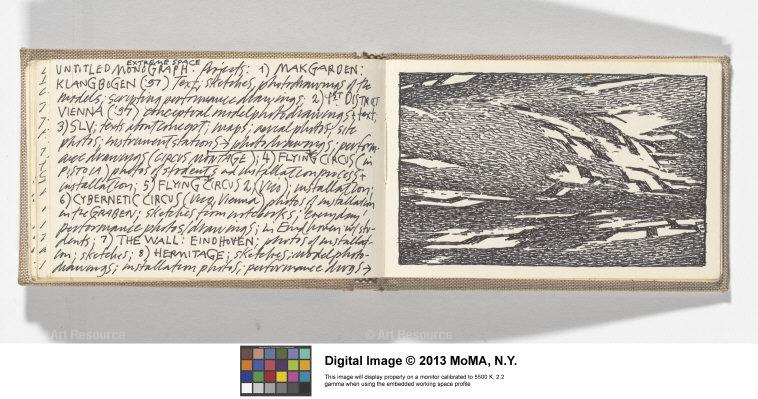 EXTREME SPACE
UNTITLED MONOGRAPH. Projects: 1) MAK GARDEN;
KLANGBOGEN ('97) Text; sketches, photodrawings of the
models; scripting performance drawings; 2) 1ST DISTRICT
VIENNA ('97) conceptual model photodrawings + text;
3) SLV; texts about concept; maps; aerial photos; site
photos; instrument stations → photodrawings; perform-
ance drawings (CIRCUS MONTAGE); 4) FLYING CIRCUS (in
PISTOIA) photos of students and installation process +
installation; 5) FLYING CIRCUS 2 (Vico); installation;
6) CYBERNETIC CIRCUS (Vico, Vienna) photos of installation
in the GRABEN; sketches from notebooks; everyday
performance photos/drawings; in Eindhoven w/ stu-
dents; 7) THE WALL: EINDHOVEN; photos of installat-
ion; sketches; 8) HERMITAGE; sketches; model photo-
drawings; installation photos; performance drwgs →
© Art Resource
© Art Resource
Digital Image © 2013 MoMA, N.Y.
This image will display properly on a monitor calibrated to 5500 K, 2.2
gamma when using the embedded working space profile